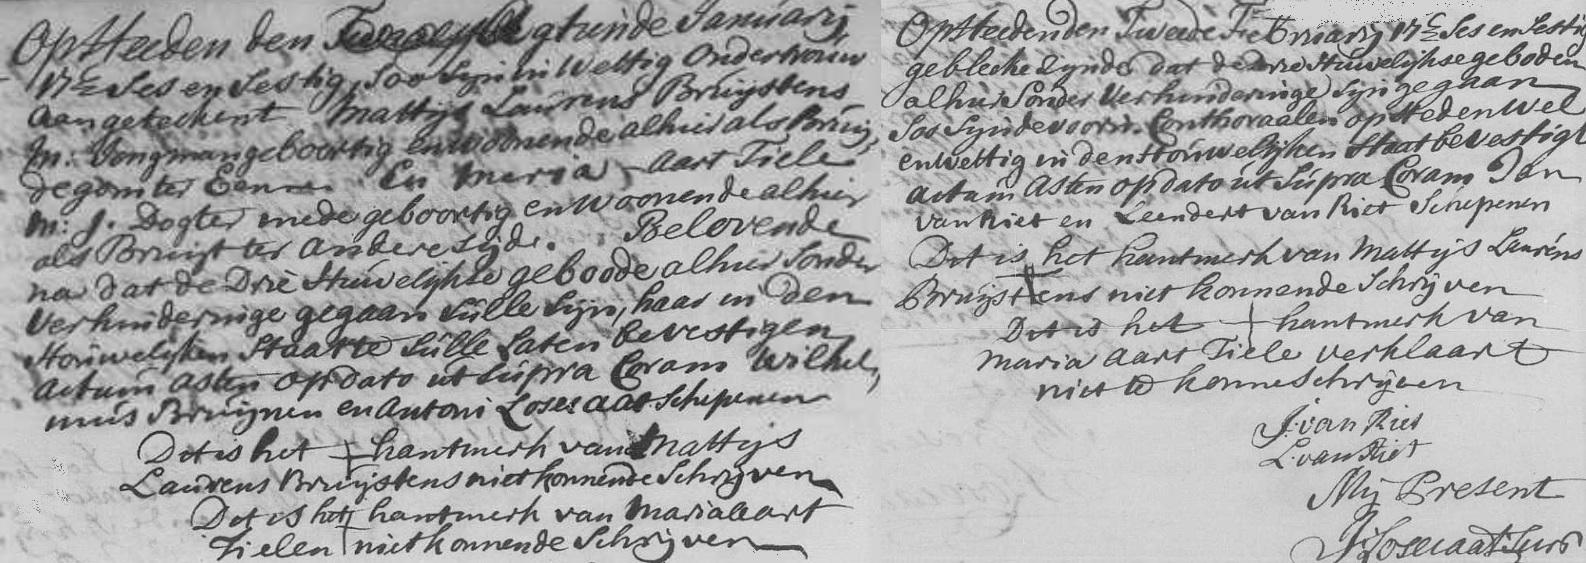 Op Heeden den gtiende Januarij
17C Ses en Sestig, Soo Syn in Wettig Ondertrouw
Aangeteekent Mattijs Laurens Bruijstens
M: Jongman geboortig en Woonende alhier als Bruij,
degom ter Eenre En Maria Aart Tiele
M: J. Dogter mede geboortig en Woonende alhier
als Bruijt ter Andere Syde. Belovende
na dat de Drie Huwelijkse geboode alhier Sonder
Verhinderinge gegaan Sulle Sijn, haar in den
Houwelijken Staat te Sulle Laten bevestigen
Actum Asten op dato ut Supra Coram Wilhel,
mus Bruijnen en Antoni Losecaat Schepenen
Dit is het hantmerk van Mattijs
Laurens Bruijstens niet konnende Schrijven
Dit is het hantmerk van Maria Aart
Tielen niet konnende Schrijven
Op Heeden den Tweede Februarij 17C Ses en Sestig
gebleeke Zynde dat de Drie Huwelijkse geboden
alhier Sonder Verhinderinge Sijn gegaan
Soo Syn de voorn. Conthoraalen op Heden Wel
en Wettig in den Houwelijken Staat bevestigt
Actum Asten op dato ut Supra Coram Jan
van Riet en Leendert van Riet Schepenen
Dit is het hantmerk van Mattijs Laurens
Bruijstens niet konnende Schrijven
Dit is het hantmerk van
Maria Aart Tiele verklaart
niet te konne Schrijven
J. van Riet
L. van Riet
Mij Present
J. Losecaat Secrs